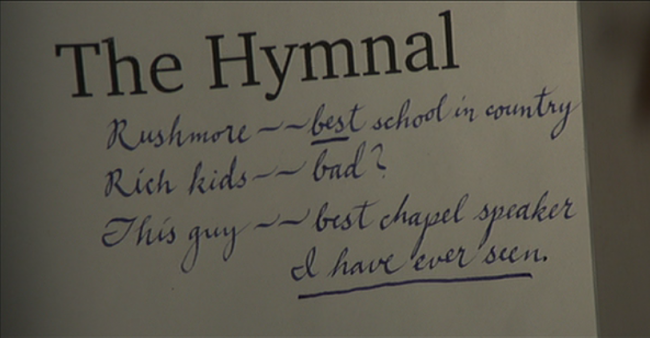 The Hymnal
Rushmore ~~ best school in country
Rich kids ~~ bad?
This guy ~~ best chapel speaker
I have ever seen.